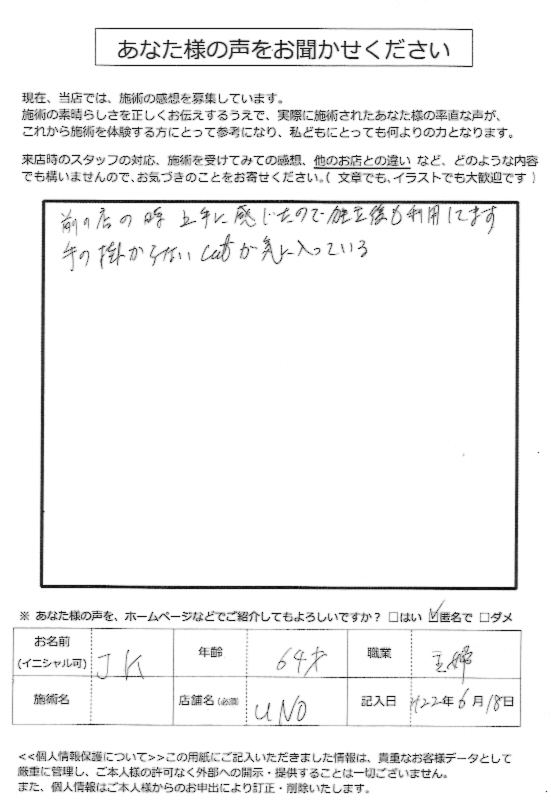 あなた様の声をお聞かせください
現在、当店では、施術の感想を募集しています。
施術の素晴らしさを正しくお伝えするうえで、実際に施術されたあなた様の率直な声が、
これから施術を体験する方にとって参考になり、私どもにとっても何よりの力となります。
来店時のスタッフの対応、施術を受けてみての感想、他のお店との違い など、どのような内容
でも構いませんので、お気づきのことをお寄せください。( 文章でも、イラストでも大歓迎です )
前の店の時 上手に感じたので独立後も利用してます
手の掛からないcutが気に入っている
※ あなた様の声を、ホームページなどでご紹介してもよろしいですか? □はい ☑匿名で □ダメ
お名前 (イニシャル可) JK 年齢 64才 職業 主婦
施術名 店舗名(必須) UNO 記入日 H22年6月18日
<<個人情報保護について>>この用紙にご記入いただきました情報は、貴重なお客様データとして
厳重に管理し、ご本人様の許可なく外部への開示・提供することは一切ございません。
また、個人情報はご本人様からのお申出により訂正・削除いたします。